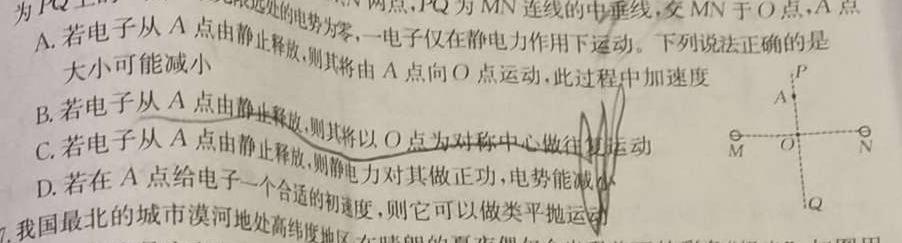 为PQ上的 远处的电势为零,一电子仅在静电力作用下运动。下列说法正确的是
两点,PQ为MN连线的中垂线,交MN于O点,A点
A. 若电子从A点由静止释放,则其将由A点向O点运动,此过程中加速度
大小可能减小
B. 若电子从A点由静止释放,则其将以O点为对称中心做往复运动
C. 若电子从A点由静止释放,则静电力对其做正功,电势能减小
D. 若在A点给电子一个合适的初速度,则它可以做类平抛运动
P
A
M
O
N
Q
7. 我国最北的城市漠河地处高纬度地区